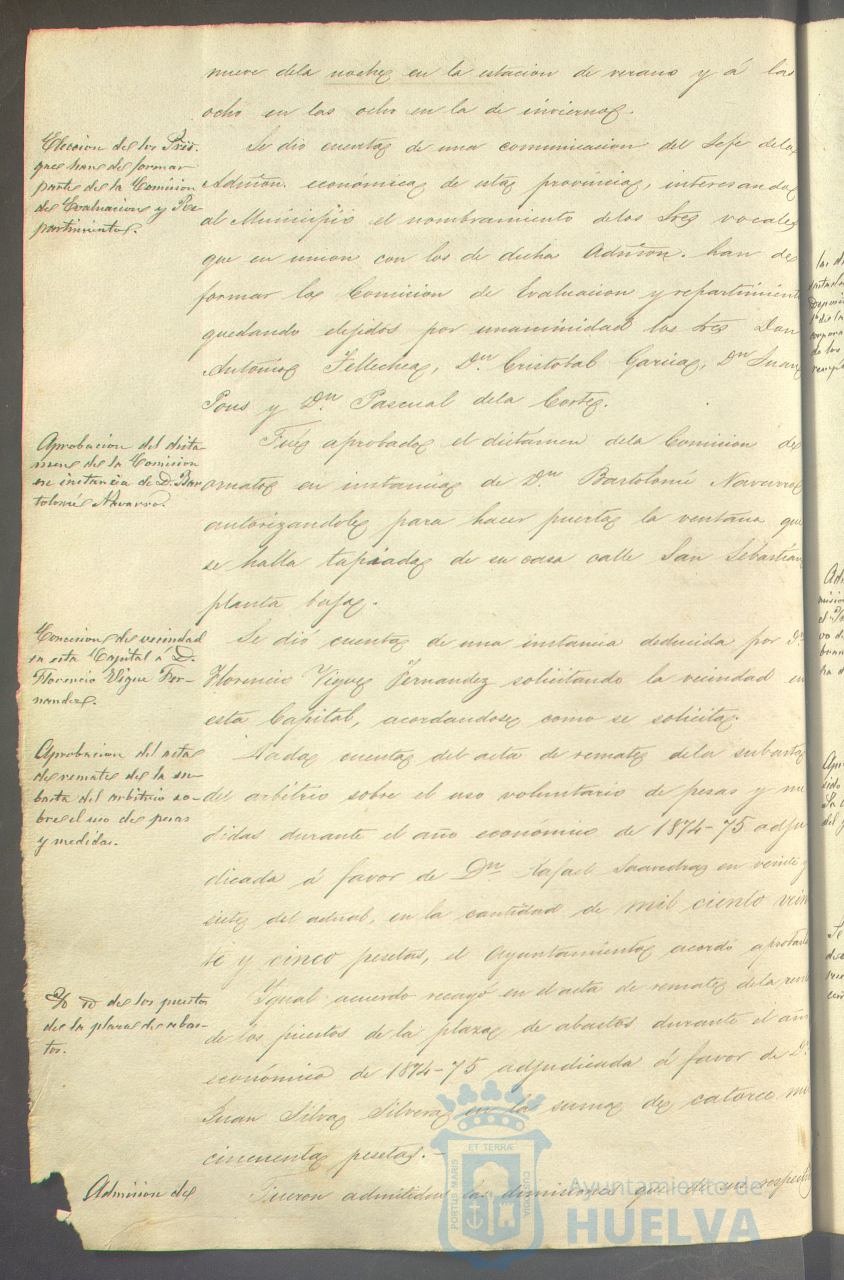 nueve dela noche en la estacion de verano y á las
ocho en las ocho en la de invierno.
Eleccion de los Pres.
que han de formar
parte de la Comision
de Evaluacion y Re-
partimiento.
Se dió cuenta de una comunicacion del Jefe dela
Admon. económica de esta provincia, interesando
al Municipio el nombramiento delos tres vocales
que en union con los de dicha Admon. han de
formar la Comision de Evaluacion y repartimiento
quedando elejidos por unanimidad los tres Don
Antonio Tellechea, Dn Cristobal Garcia, Dn Juan
Pons y Dn Pascual dela Corte.
Aprobacion del dicta-
men de la Comision
en instancia de D. Bar
tolomé Navarro.
Fué aprobado el dictámen dela Comision de
ornato en instancia de Dn Bartolomé Navarro
autorizandole para hacer puerta la ventana que
se halla tapiada de su casa calle San Sebastian
planta baja.
Concesion de vecindad
en esta Capital á D.
Florencio Vigue Fer-
nandez.
Se dió cuenta de una instancia deducida por Dn
Florencio Vigue Fernandez solicitando la vecindad en
esta Capital, acordandose como se solicita.
Aprobacion del acta
de remate de la su-
basta del arbitrio so-
bre el uso de pesas
y medidas.
Dada cuenta del acta de remate dela subasta
del arbitrio sobre el uso voluntario de pesas y me
didas durante el año económico de 1874-75 adju
dicada á favor de Dn Rafael Saavedra en veinte y
siete del actual, en la cantidad de mil ciento vein
te y cinco pesetas, el Ayuntamiento acordó aprobarla
de los puestos
de la plaza de abas-
tos.
Ygual acuerdo recayó en el acta de remate dela renta
de los puestos de la plaza de abastos durante el año
económico de 1874-75 adjudicada á favor de Dn
Juan Silva Silvera en la suma de catorce mil
cincuenta pesetas.-
Admision de
Fueron admitidas las dimisiones que de sus respecti
PORTUS MARIS ET TERRÆ CUSTODIA
Ayuntamiento de
HUELVA